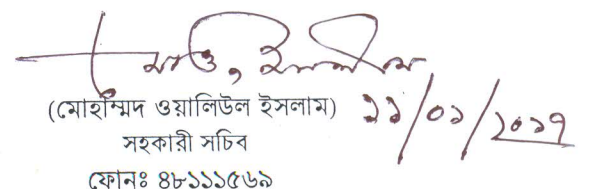 (মোহাম্মদ ওয়ালিউল ইসলাম) ১১/০১/২০১৭
সহকারী সচিব
ফোনঃ ৪৮১১১৫৬৯